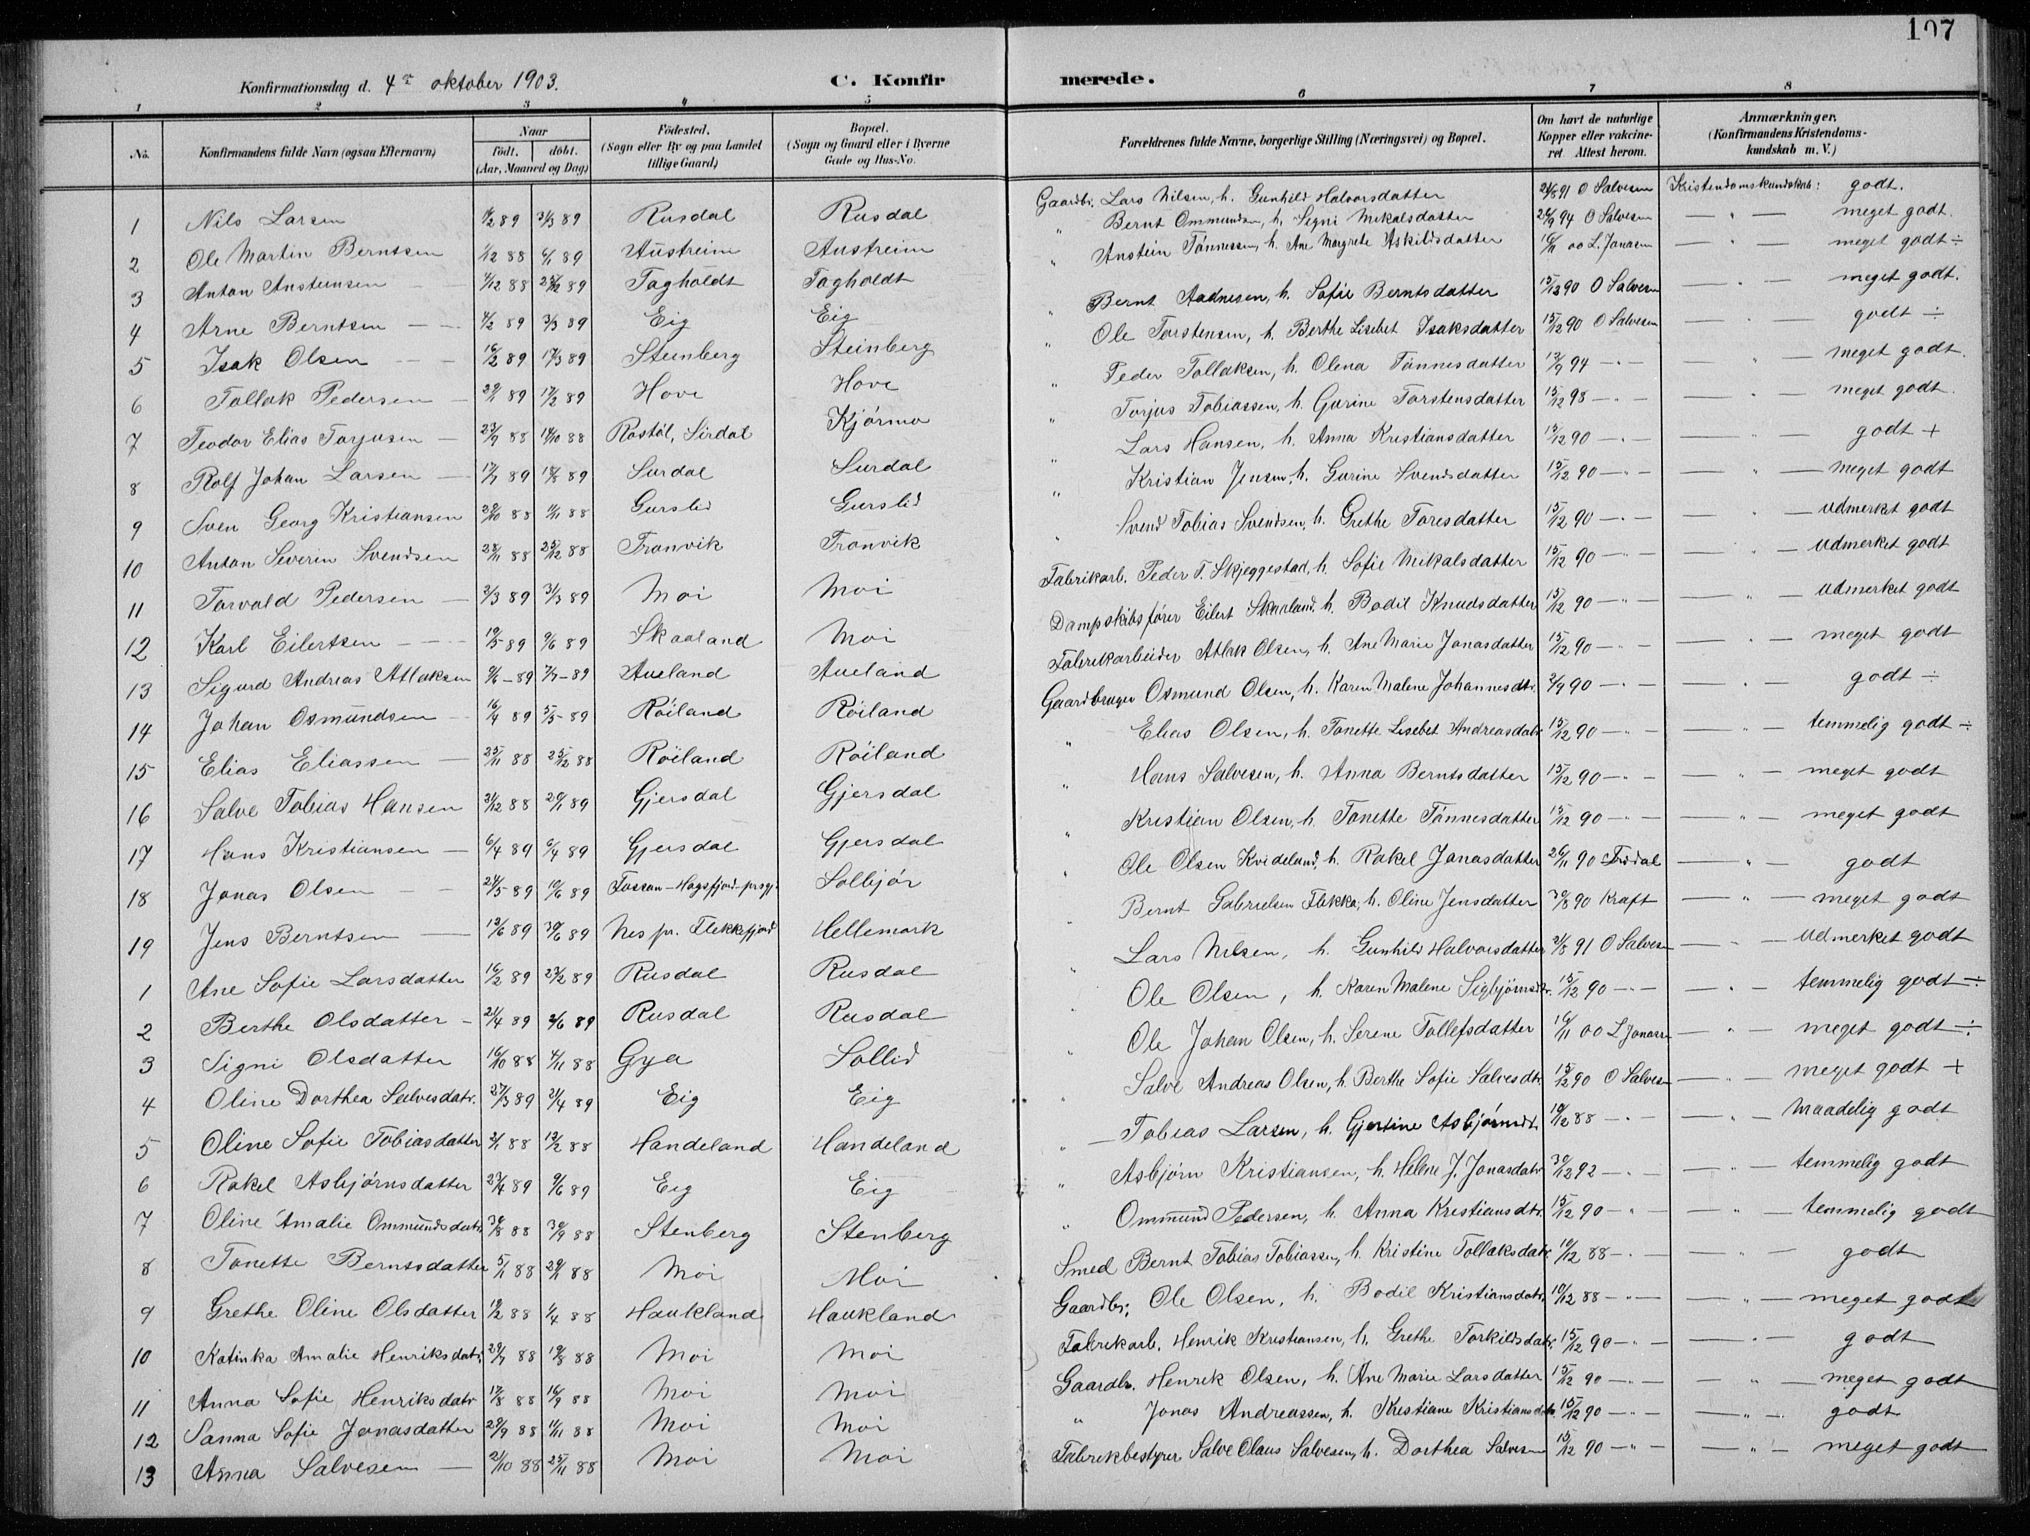 107
Konfirmationsdag d. 4de oktober 1903.
C. Konfirmerede.
1 2 3 4 5 6 7 8
No. Konfirmandens fulde Navn (ogsaa Efternavn) Naar født. døbt. (Aar, Maaned og Dag) Fødested. (Sogn eller By og paa Landet tillige Gaard) Bopæl. (Sogn og Gaard eller i Byerne Gade og Hus-No. Forældrenes fulde Navne, borgerlige Stilling (Næringsvei) og Bopæl. Om havt de naturlige Kopper eller vakcineret. Attest herom. Anmærkninger. (Konfirmandens Kristendomskundskab m. V.)
1 Nils Larsen 89 3/3 89 Rusdal Rusdal Gaardbr. Lars Nilsen, h. Gunhild Halvorsdatter 91 O Salvesen Kristendomskundskab: godt.
2 Ole Martin Berntsen 1/12 88 6/1 89 Austreim Austreim " Bernt Ommundsen, h. Signi Mikalsdatter 94 O Salvesen — " — meget godt.
3 Anton Ansteinsen 4/12 88 89 Fagholdt Fagholdt " Anstein Tønnessen, h. Ane Margrete Askildsdatter 00 L. Jonasen — " — meget godt ÷
4 Arne Berntsen 4/2 89 3/3 89 Eig Eig " Bernt Aadnesen, h. Sofie Berntsdatter 15/12 90 O Salvesen — " — meget godt.
5 Isak Olsen 16/2 89 17/3 89 Steinberg Steinberg " Ole Torstensen, h. Berthe Lisebet Isaksdatter 15/12 90 O Salvesen — " — godt ÷
6 Tollak Pedersen 89 17/2 89 Hove Hove " Peder Tollaksen, h. Olena Tønnesdatter 12/9 94 — " — meget godt.
7 Teodor Elias Torjusen 23/9 88 14/10 88 Rostøl, Sirdal Kjørmo " Torjus Tobiassen, h. Gurine Torstensdatter 15/12 98 — " — meget godt.
8 Rolf Johan Larsen 17/7 89 18/8 89 Surdal Surdal " Lars Hansen, h. Anna Kristiansdatter 15/12 90 — " — godt +
9 Sven Georg Kristiansen 88 11/11 88 Gurslid Gurslid " Kristian Jensen, h. Gurine Svendsdatter 15/12 90 — " — meget godt
10 Anton Severin Svendsen 28/11 88 25/12 88 Tronvik Tronvik " Svend Tobias Svendsen, h. Grethe Toresdatter 15/12 90 — " — udmerket godt
11 Torvald Pedersen 3/3 89 31/3 89 Moi Moi Fabrikarb. Peder T. Skjeggestad, h. Sofie Mikalsdatter 15/12 90 — " — udmerket godt
12 Karl Eilertsen 19/5 89 9/6 89 Skaaland Moi Dampskibsfører Eilert Skaaland, h. Bodil Knudsdatter 15/12 90 — " — udmerket godt
13 Sigurd Andreas Atlaksen 9/6 - 89 7/7 - 89 Aueland Aueland Fabrikarbeider Atlak Olsen, h. Ane Marie Jonasdatter 15/12 90 — " — meget godt
14 Johan Osmundsen 16/4 89 5/5 89 Røiland Røiland Gaardbruger Osmund Olsen, h. Karen Malene Johannesdtr. 2/9 90 — " — godt ÷
15 Elias Eliassen 25/11 88 25/12 88 Røiland Røiland " Elias Olsen, h. Tonette Lisebet Andreasdatr 15/12 90 — " — temmelig godt ÷
16 Salve Tobias Hansen 31/12 88 20/1 89 Gjersdal Gjersdal " Hans Salvesen, h. Anna Berntsdatter 15/12 90 — " — meget godt
17 Hans Kristiansen 6/4 89 6/4 89 Gjersdal Gjersdal " Kristian Olsen, h. Tonette Tønnesdatter 15/12 90 — " — meget godt
18 Jonas Olsen 24/5 89 10/6 89 Fossan - Høgsfjord - prsgj. Solbjør " Ole Olsen Kvideland, h. Rakel Jonasdatter 26/11 90 — " — godt
19 Jens Berntsen 12/6 89 30/6 89 Nes pr. Flekkefjord Hellemork " Bernt Gabrielsen Flekke, h. Oline Jensdatter 30/8 90 Kraft — " — meget godt
1 Ane Sofie Larsdatter 16/2 89 89 Rusdal Rusdal " Lars Nilsen, h. Gunhild Halvorsdatter 91 O Salvesen — " — udmerket godt
2 Berthe Olsdatter 21/4 89 2/6 89 Rusdal Rusdal " Ole Olsen, h. Karen Malene Sigbjørnsdtr. 15/12 90 — " — temmelig godt ÷
3 Signi Olsdatter 16/10 88 4/11 88 Gya Sollid " Ole Johan Olsen, h. Serene Tollefsdatter 00 L Jonasen — " — meget godt ÷
4 Oline Dorthea Salvesdatr. 27/3 89 21/4 89 Eig Eig " Salve Andreas Olsen, h. Berthe Sofie Salvesdtr. 15/12 90 O Salvesen — " — meget godt +
5 Oline Sofie Tobiasdatter 2/1 88 12/2 88 Handeland Handeland " Tobias Larsen, h. Gjertine Asbjørnsdtr. 10/12 88 — " — maadelig godt
6 Rakel Asbjørnsdatter 23/4 89 9/6 89 Eig Eig " Asbjørn Kristiansen, h. Helene J. Jonasdatr 30/12 92 — " — temmelig godt
7 Oline Amalie Ommundsdatr. 30/8 88 30/9 88 Stenberg Stenberg " Ommund Pedersen, h. Anna Kristiansdtr. 15/12 90 — " — temmelig godt
8 Tonette Berntsdatter 5/1 88 29/1 88 Moi Moi Smed Bernt Tobias Tobiassen, h. Kristine Tollaksdatr. 10/12 88 — " — godt
9 Grethe Oline Olsdatter 19/2 88 1/4 88 Haukland Haukland Gaardbr. Ole Olsen, h. Bodil Kristiansdatr. 10/12 88 — " — meget godt
10 Katinka Amalie Henriksdatr. 29/7 88 19/8 88 Moi Moi Fabrikarb. Henrik Kristiansen, h. Grethe Torkildsdatr. 15/12 90 — " — godt
11 Anna Sofie Henriksdatr 17/8 88 16/9 88 Moi Moi Gaardbr. Henrik Olsen, h. Ane Marie Larsdatter 15/12 90 — " — meget godt
12 Sanna Sofie Jonasdatter 29/9 88 11/11 88 Moi Moi " Jonas Andreassen, h. Kristiane Kristiansdatr. 15/12 90 — " — godt
13 Anna Salvesen 21/10 88 25/11 88 Moi Moi Fabrikbestyrer Salve Olaus Salvesen, h. Dorthea Salvesen 15/12 90 — " — meget godt